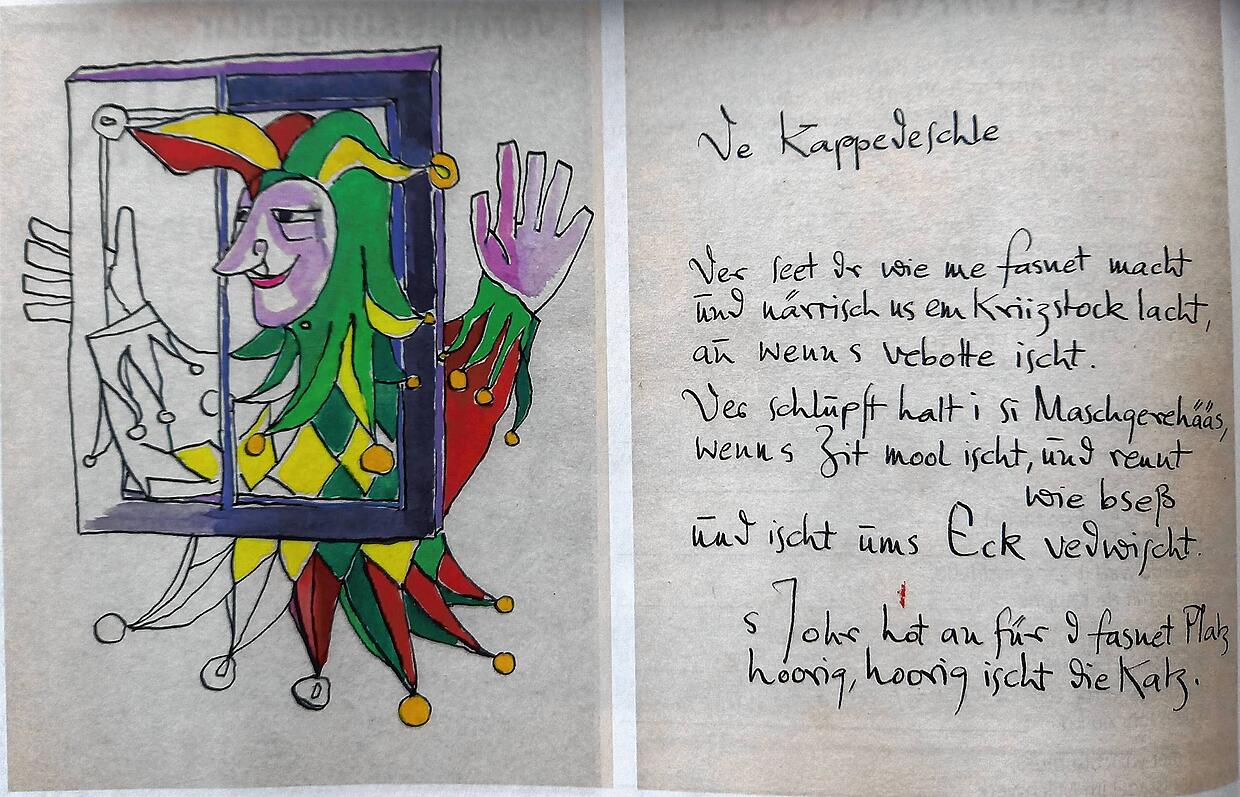 De Kappedeschle
Der seet dr wie me fasnet macht
und närrisch us em Kriizstock lacht,
au wenn s vebotte ischt.
Der schlupft halt i si Maschgerehääs,
wenn s Zit mool ischt, und rennt
wie bseß
und ischt ums Eck vedwischt.
s Johr hot au für d fasnet Platz
hoorig, hoorig ischt die Katz.